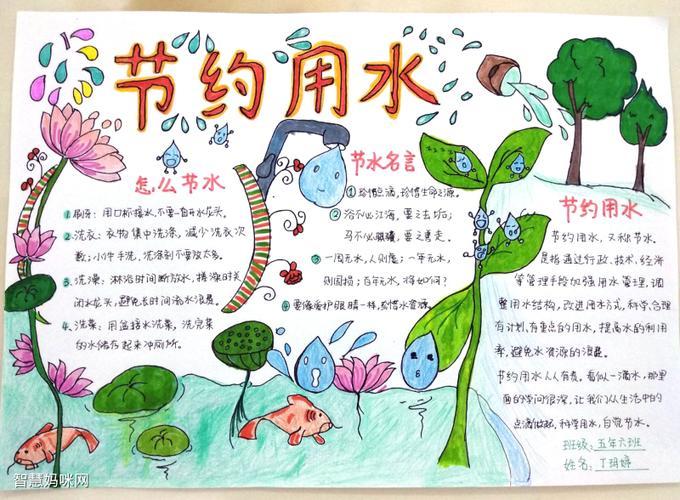 节约用水
怎么节水
1. 刷牙：用口杯接水，不要一直开水龙头。
2. 洗衣：衣物集中洗涤，减少洗衣次
数；小件手洗，洗涤剂不要放太多。
3. 洗澡：淋浴时间断放水，搓澡时关
闭水龙头，避免长时间流水浪费。
4. 洗菜：用盆接水洗菜，洗完菜
的水储存起来冲厕所。
节水名言
① 珍惜点滴，珍惜生命之源。
② 浴不必江海，要之去垢；
马不必骐骥，要之善走。
③ 一周无水，人则危；一年无水，
则国损；百年无水，将如何？
④ 要像爱护眼睛一样，珍惜水资源。
节约用水
节约用水，又称节水。
是指通过行政、技术、经济
等管理手段加强用水管理，调
整用水结构，改进用水方式，科学、合理
有计划、有重点的用水，提高水的利用
率，避免水资源的浪费。
节约用水人人有责。看似一滴水，那里
面的学问很深，让我们从生活中的
点滴做起，科学用水，自觉节水。
班级：五年六班
姓名：丁玥婷
智慧妈咪网